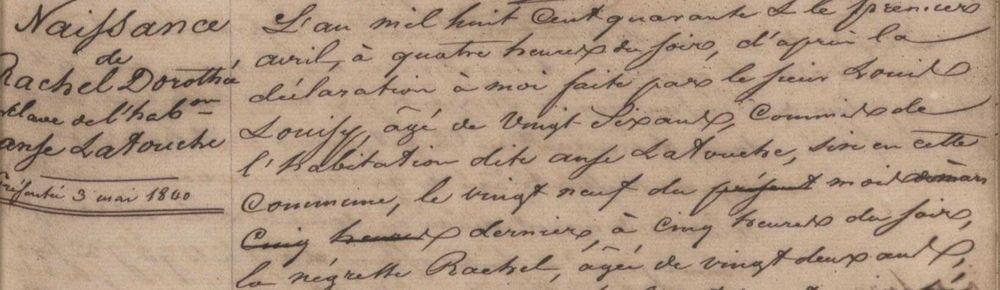 Naissance
de
Rachel Dorothé
esclave de l'habon
anse Latouche
Présenté 3 mai 1840
L'an mil huit Cent quarante & le premier
avril, à quatre heures du soir, d'après la
déclaration à moi faite par le sieur Louis
Louisy, âgé de vingt Six ans, Commis de
l'habitation dite anse Latouche, sise en cette
Commune, le vingt neuf du présent mois de mars
Cinq heures dernier, à cinq heures du soir,
la négrette Rachel, âgée de vingt deux ans,